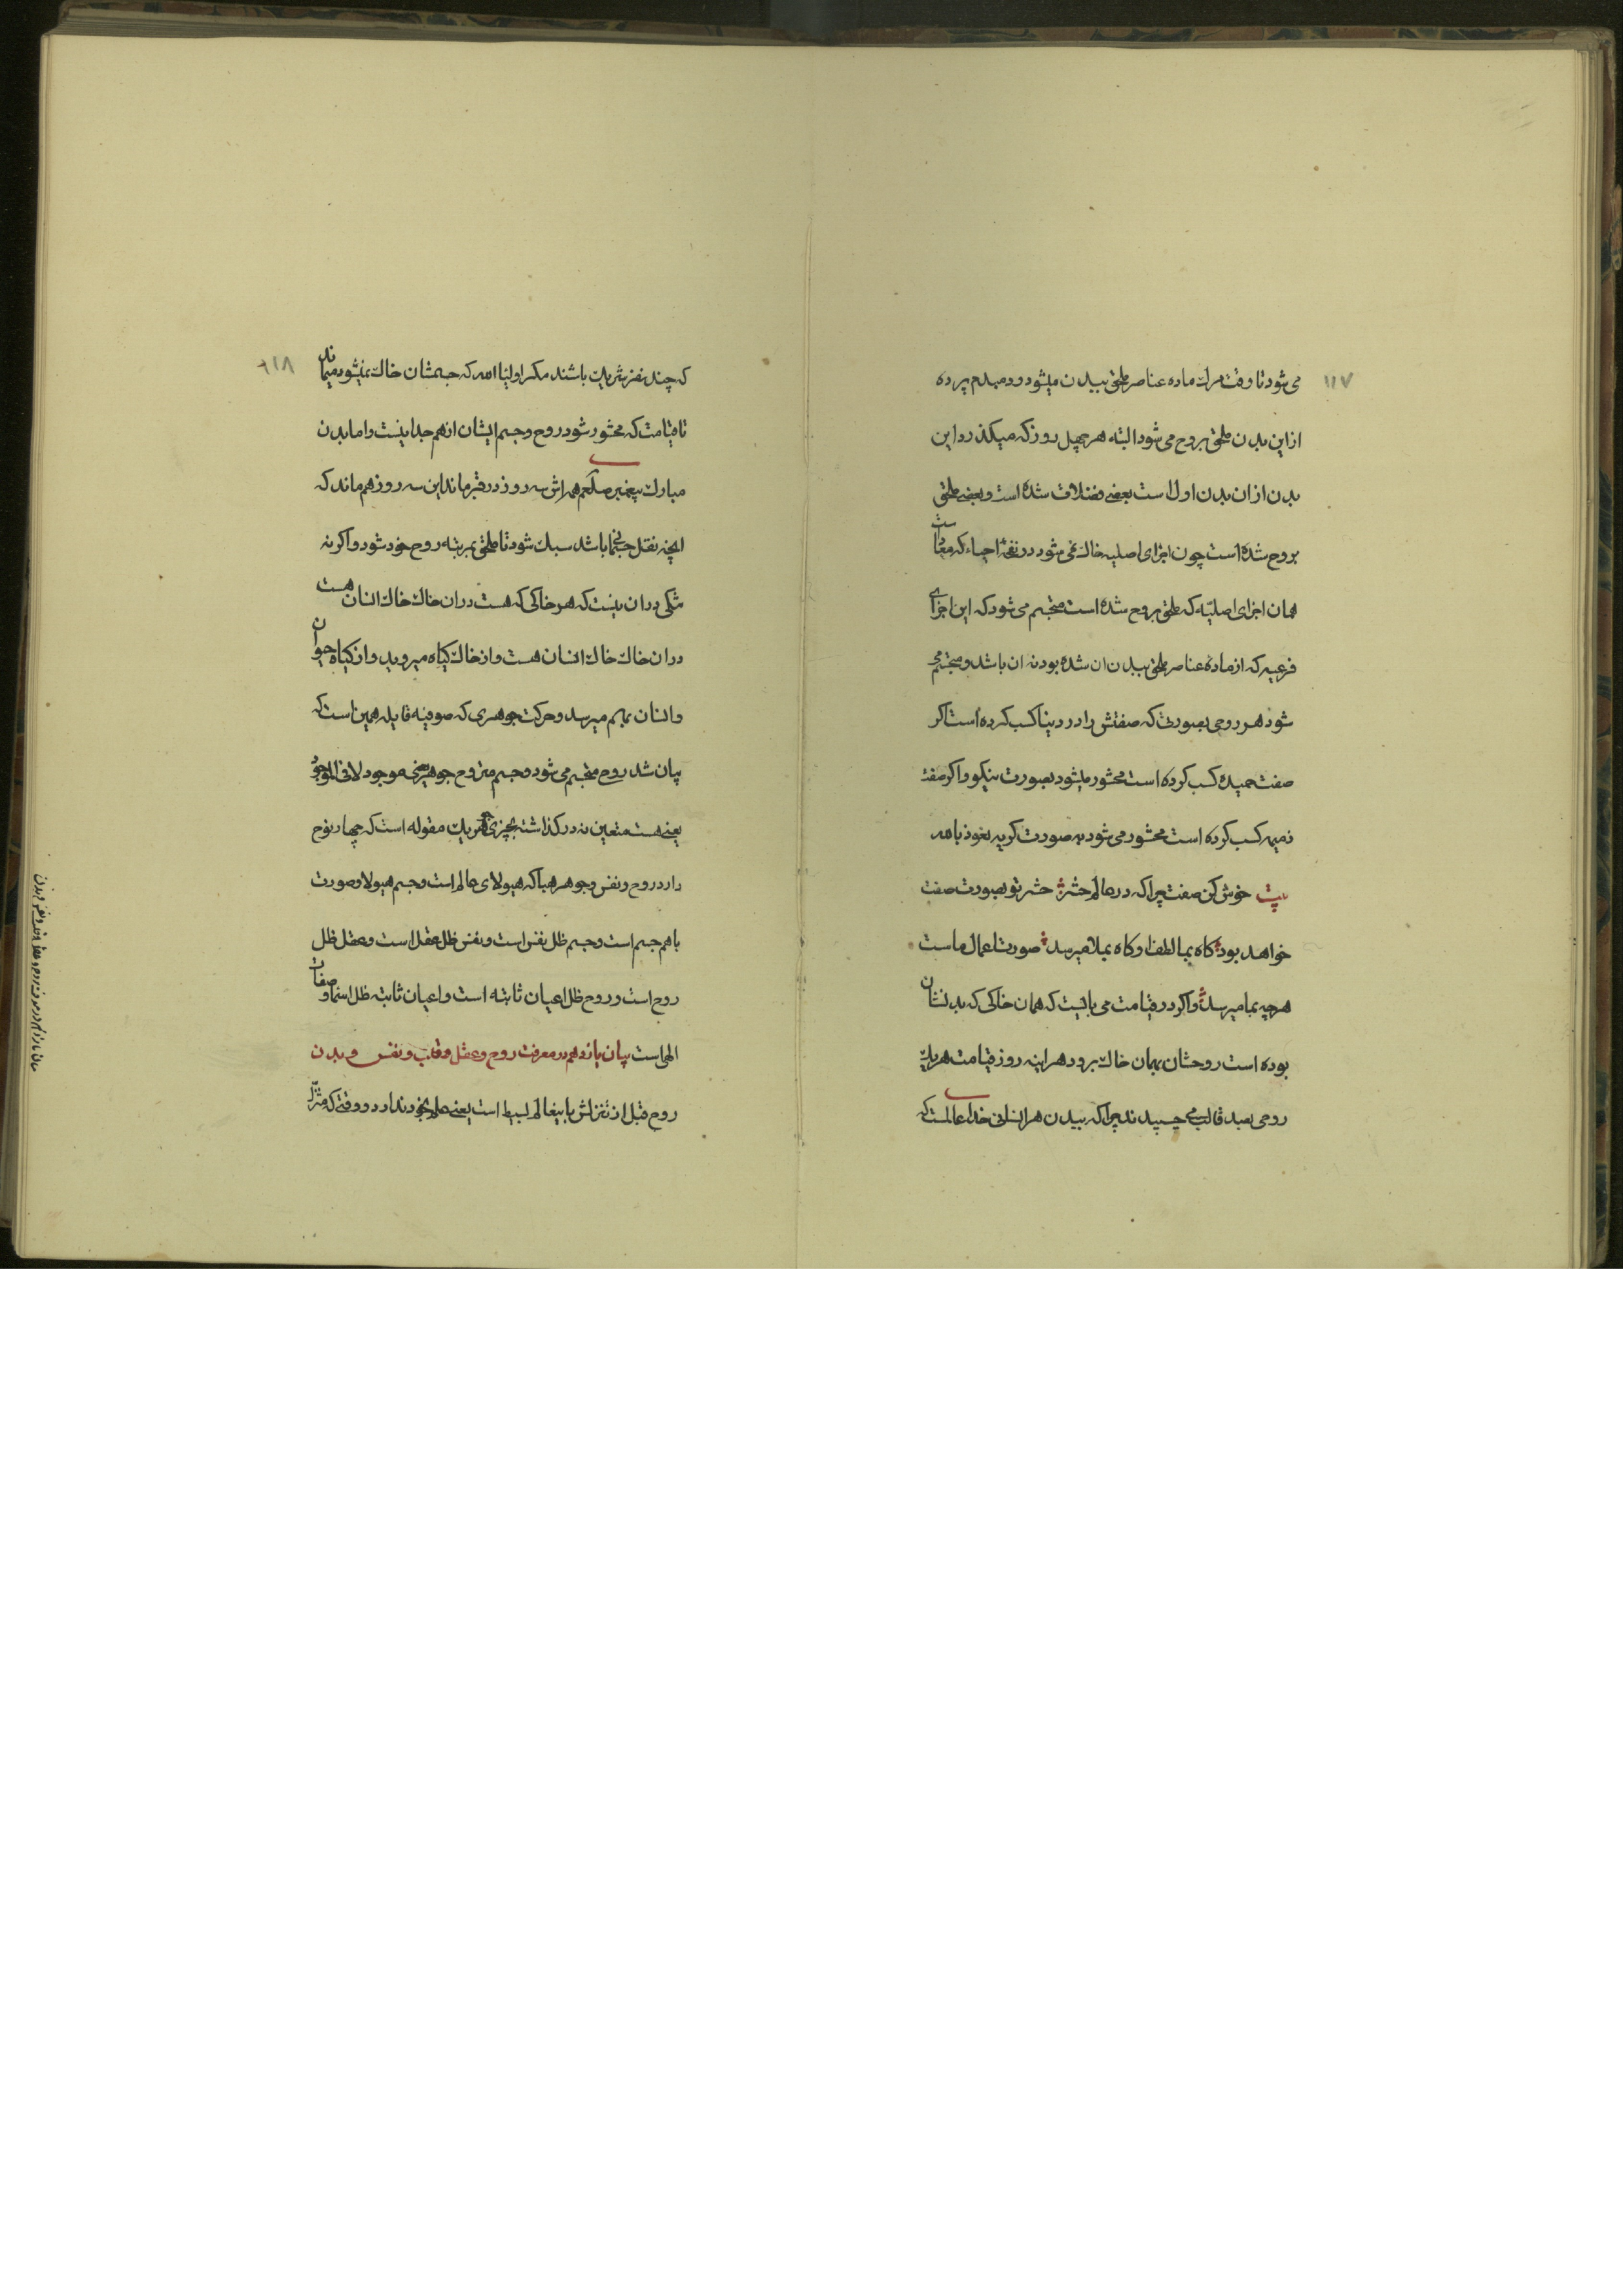 ۱۱۷
می شود تا وقت مرك ماده عناصر ملحق ببدن میشود و دمبدم پرده
از این بدن ملحق بروح می شود البته هر چهل روز که میکذرد این
بدن از ان بدن اول است بعضی فضلات شده است و بعضی ملحق
بروح شده است چون اجزای اصلیه خاك نمی شود در نفخهٔ احیاء که
همان اجزای اصلیّه که ملحق بروح شده است متجسّم می شود که این اجزای
فرعیه که از ماده عناصر ملحق ببدن ان شده بود نه ان باشد و متجسّم می
شود هر روحی بصورتی که صفتش را در دنیا کسب کرده است اکر
صفت حمیده کسب کرده است محشور میشود بصورت نیکو و اکر صفت
ذمیمه کسب کرده است محشور می شود به صورت کریه نعوذ بالله
بیت خوش کن صفت چرا که در عالم حشر حشر تو بصورت صفت
خواهد بود کاه بما لطف او کاه بملا میرسد صورت اعمال ماست
هرچه بما میرسد و اکر در قیامت می بایست که همان خاکی که بدنشان
بوده است روحشان بهمان خاك برود هر اینه روز قیامت هر یك
روحی بصد قالب می چسپیدند چرا که ببدن هر انسانی خدا عالمست که
۱۱۸
که چند نفر شریك باشند مکر اولیا الله که جسمشان خاك نمیشود میماند
تا قیامت که محشور شود روح و جسم ایشان از هم جدا نیست و اما بدن
مبارك پیغمبر صلعم همراش سه روز در قبر ماند این سه روز هم ماند که
انچه ثقل جسمانی باشد سبك شود تا ملحق بمرتبه روح خود شود و اکر نه
شکی در ان نیست که هر خاکی که هست در ان خاك خاك انسان هست
در ان خاك خاك انسان هست و از خاك کیاه میروید و از کیاه حیوان
و انسان بهم میرسد و حرکت جوهری که صوفیه قایلند همین است که
بیان شد روح متجسّم می شود و جسم متروح جوهر یعنی موجود لا فی الموضوع
یعنی هست متعین نه در کذاشته بچیزی جوهر یك مقوله است که چهار نوع
دارد روح و نفس و جوهر هبا که هیولای عالم است و جسم هیولا و صورت
با هم جسم است و جسم ظل نفس است و نفس ظل عقل است و عقل ظل
روح است و روح ظل اعیان ثابته است و اعیان ثابته ظل اسما و صفات
الهی است بیان یازدهم در معرفت روح و عقل و قلب و نفس و بدن
روح قبل از تنزلش باینعالم بسیط است یعنی علم بخود ندارد و وقتی که متنزّل
بیان یازدهم در معرفت روح و عقل و قلب و نفس و بدن